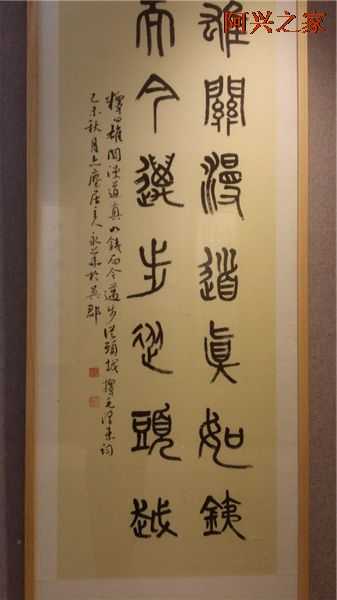 阿兴之家
雄關漫道真如銕
而今邁步從頭越
釋曰雄関漫道真如銕而今邁步從頭越毛澤東詞
秋月居主人永於吳郡